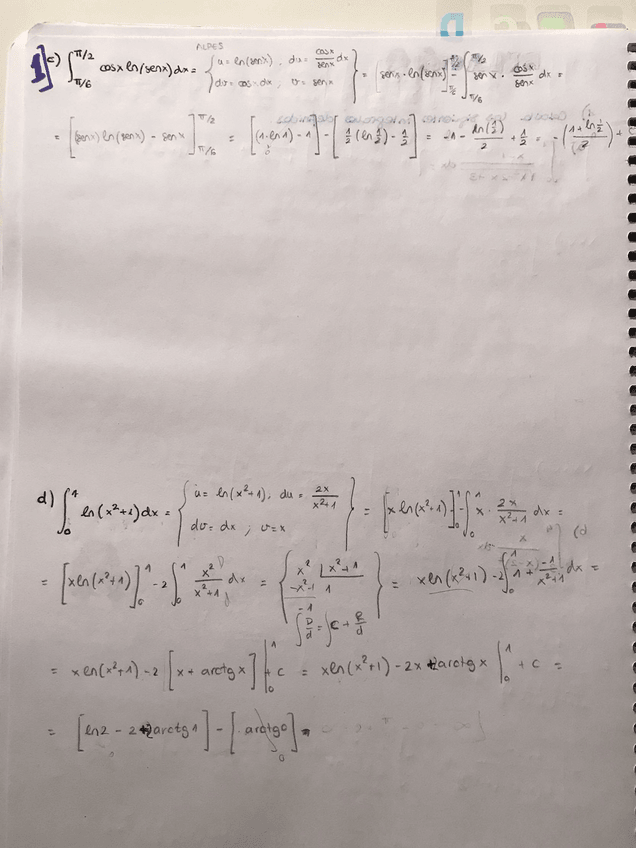 ALPES
1 c) ∫_{π/6}^{π/2} cosx ln(senx)dx = { u = ln(senx), du = cosx/senx dx ; dv = cosx dx ; v = senx } = [senx · ln(senx)]_{π/6}^{π/2} - ∫_{π/6}^{π/2} senx · cosx/senx dx =
= [(senx) ln(senx) - senx]_{π/6}^{π/2} = [(1·ln1) - 1] - [1/2 (ln 1/2) - 1/2] = -1 - ln(1/2)/2 + 1/2 =
d) ∫_0^1 ln(x²+1)dx = { u = ln(x²+1), du = 2x/x²+1 ; dv = dx ; v = x } = [x ln(x²+1)]_0^1 - ∫_0^1 x · 2x/x²+1 dx =
= [x ln(x²+1)]_0^1 - 2 ∫_0^1 x²/x²+1 dx = { x² | x²+1 ; -x²-1 ; 1 ; -1 ; ∫ D/d = ∫ C + R/d } = x ln(x²+1) - 2 ∫_0^1 1 + -1/x²+1 dx =
= x ln(x²+1) - 2 [x + arctg x] |_0^1 + c = x ln(x²+1) - 2x + 2arctg x |_0^1 + c =
= [ln2 - 2 + 2arctg1] - [arctg0] =
0